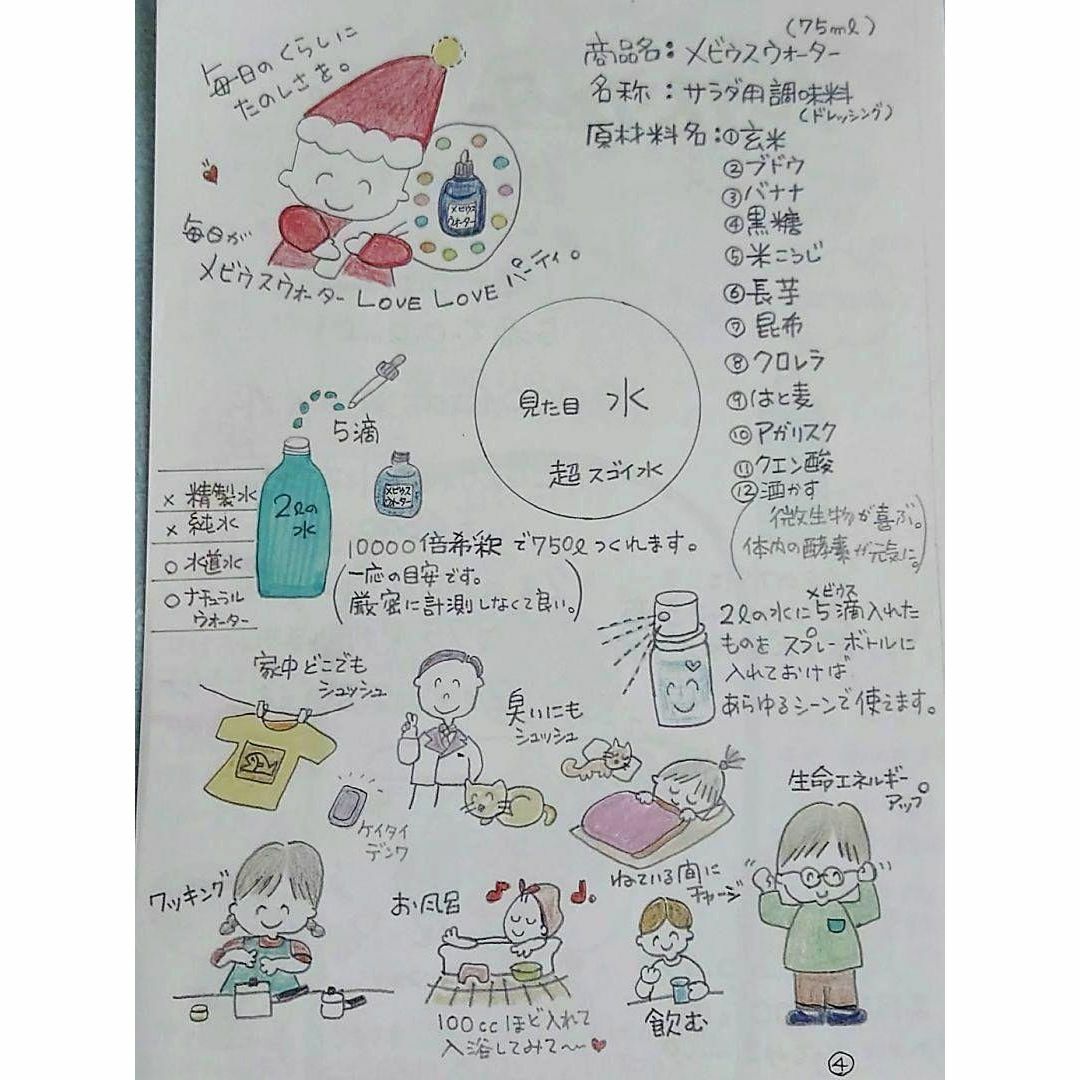 毎日のくらしに
たのしさを。
メビウス
ウォーター
毎日が
メビウスウォーター LOVE LOVE パーティ。
(75ml)
商品名：メビウスウォーター
名称：サラダ用調味料
(ドレッシング)
原材料名：①玄米
②ブドウ
③バナナ
④黒糖
⑤米こうじ
⑥長芋
⑦昆布
⑧クロレラ
⑨はと麦
⑩アガリスク
⑪クエン酸
⑫酒かす
(微生物が喜ぶ。
体内の酵素が元気に。)
見た目 水
超スゴイ水
5滴
2lの
水
メビウス
ウォーター
× 精製水
× 純水
○ 水道水
○ ナチュラル
ウォーター
10000倍希釈で750lつくれます。
(一応の目安です。
厳密に計測しなくて良い。)
メビウス
2lの水に5滴入れた
ものをスプレーボトルに
入れておけば
あらゆるシーンで使えます。
家中どこでも
シュッシュ
臭いにも
シュッシュ
ケイタイ
デンワ
ねている間に
チャージ
生命エネルギー
アップ。
ワッキング
お風呂
100ccほど入れて
入浴してみて〜♥
飲む
④